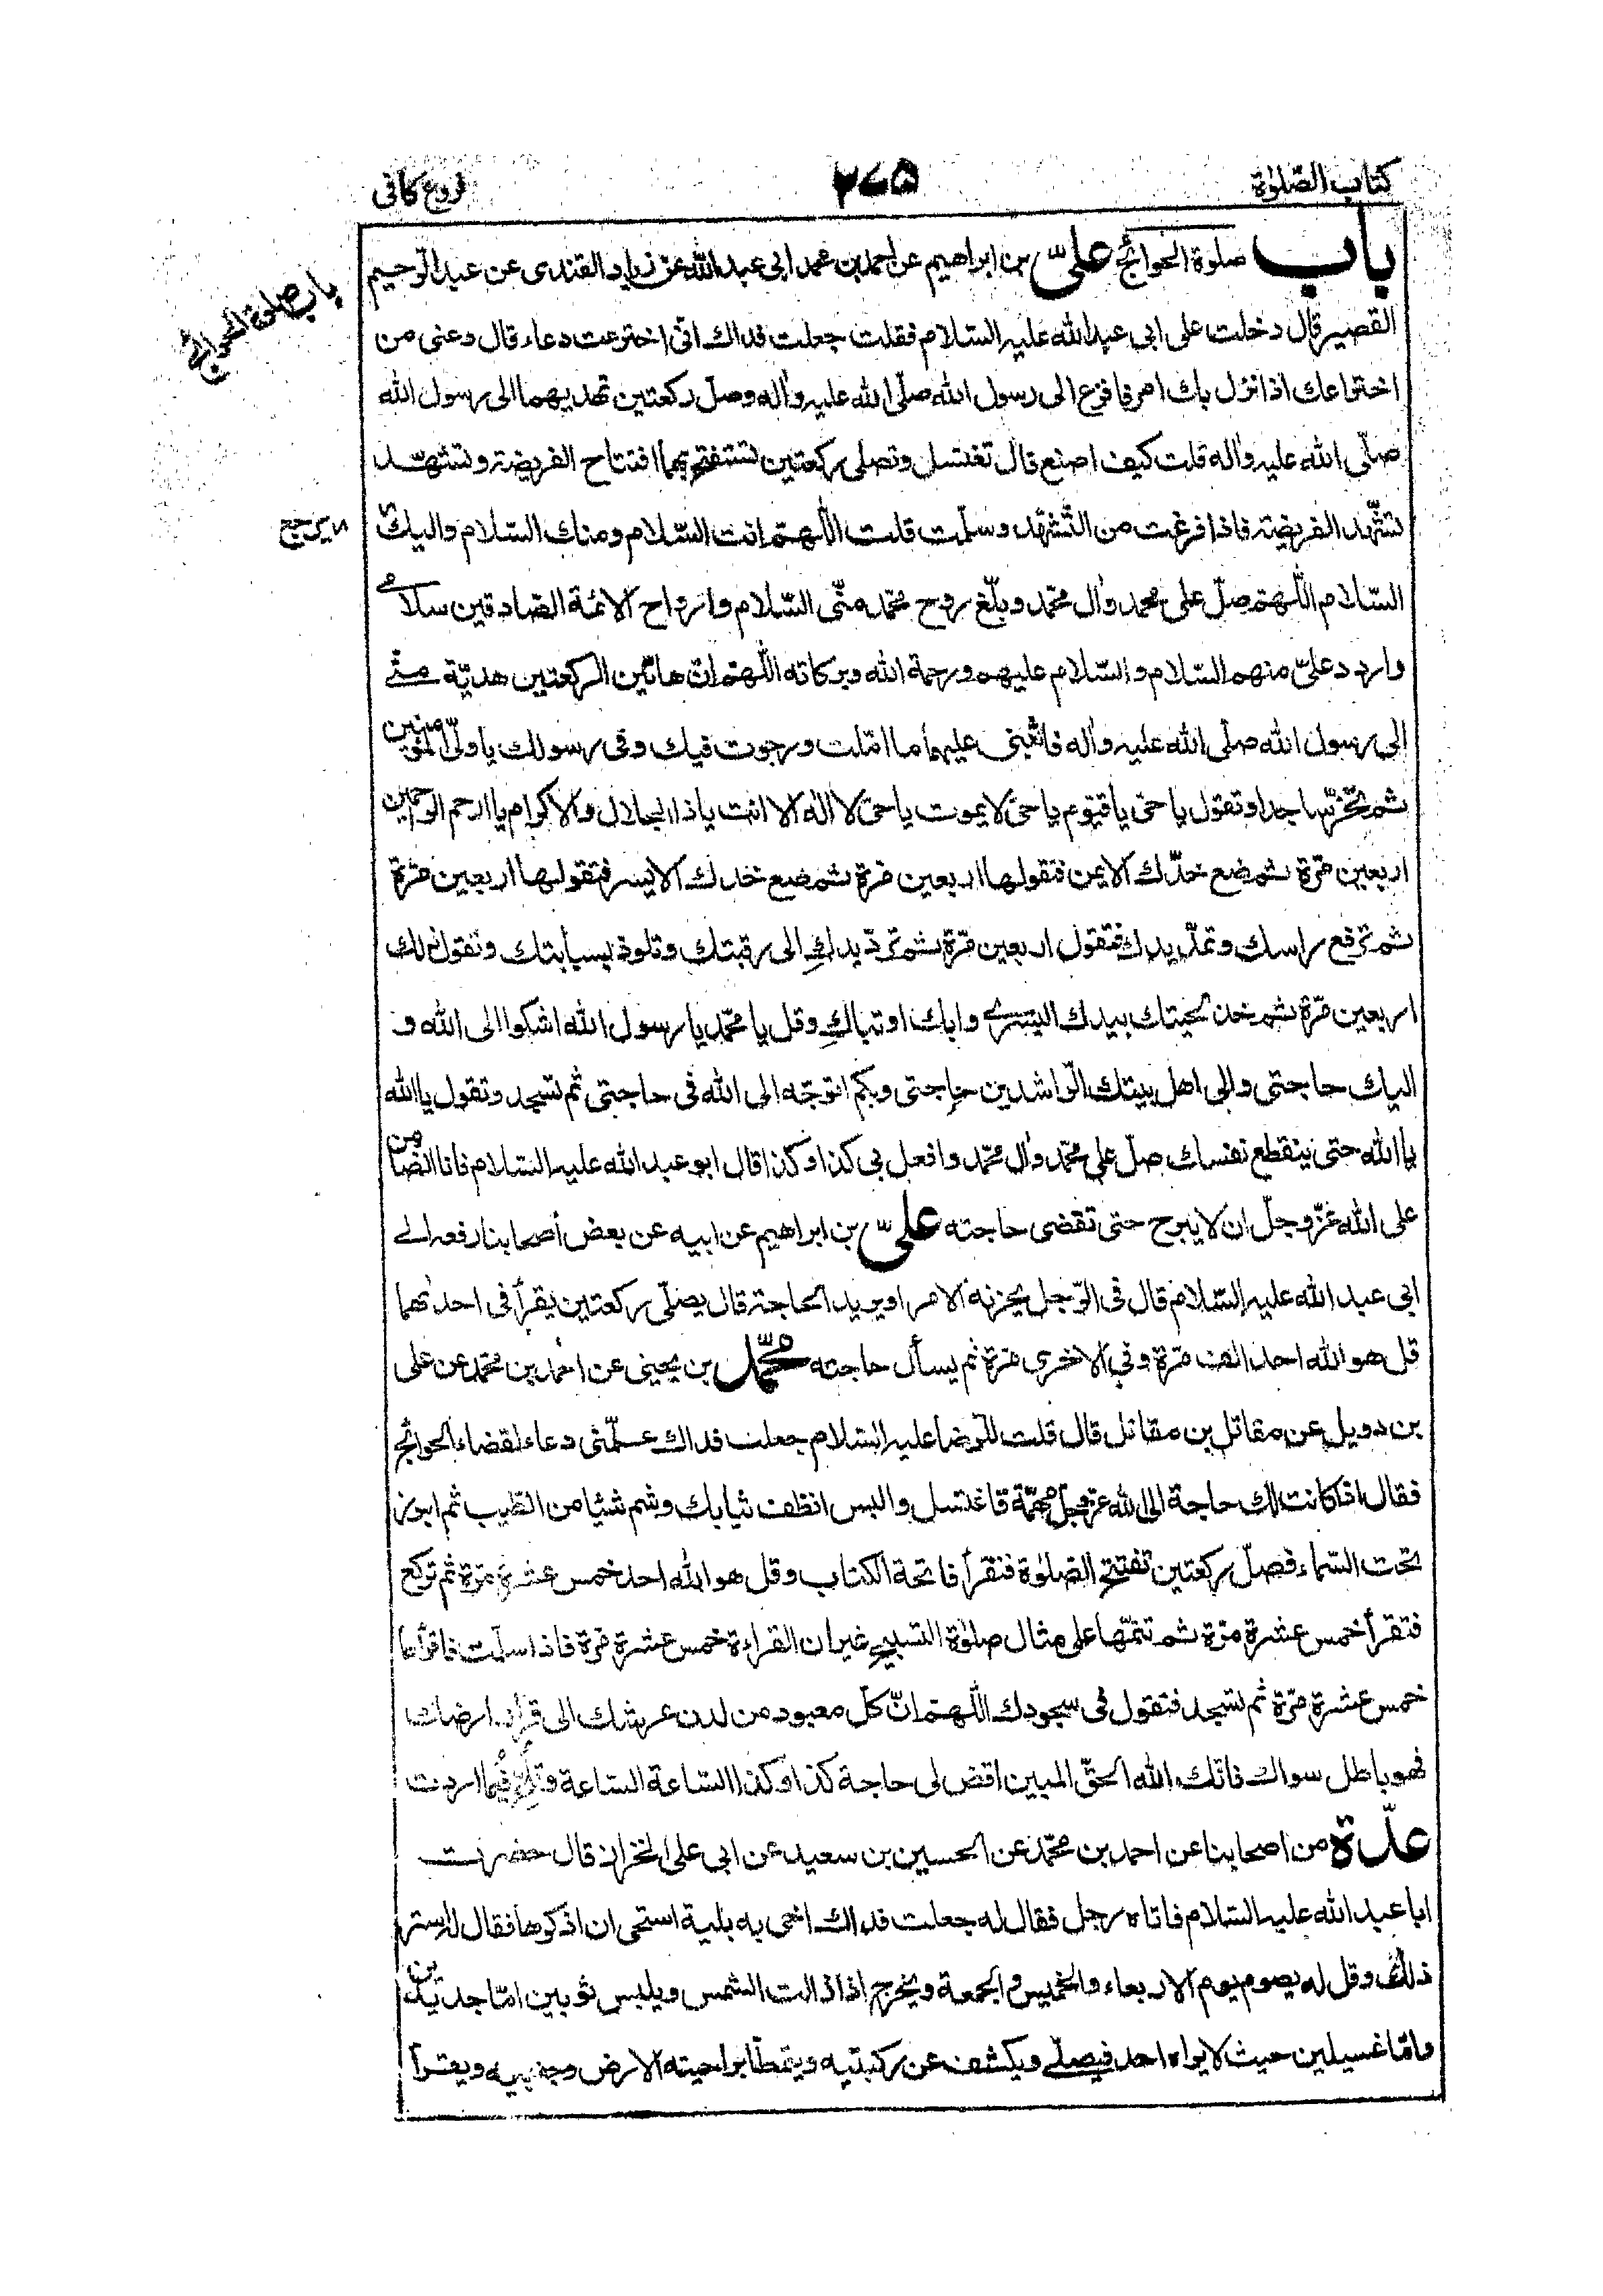 كتاب الصّلوٰة
٢٧٥
فروع كافى
باب صلوة الحوائج علىّ بن ابراهيم عن احمد بن محمد ابى عبد الله عن زياد القندى عن عبد الرّحيم
باب صلوة الحوائج
القصير قال دخلت على ابى عبد الله عليه السّلام فقلت جعلت فداك انّى اخترعت دعاء قال دعنى من
اختراعك اذا نزل بك امر فافزع الى رسول الله صلّى الله عليه واٰله وصلّ ركعتين تهديهما الى رسول الله
صلّى الله عليه واٰله قلت كيف اصنع قال تغتسل وتصلى ركعتين تستفتح بهما افتتاح الفريضة وتشهّد
تشهّد الفريضة فاذا فرغت من التّشهّد وسلّمت قلت اللّهمّ انت السّلام ومنك السّلام واليك
السّلام اللّهمّ صلّ على محمد واٰل محمّد وبلّغ روح محمّد منّى السّلام وارواح الائمّة الصّادقين سلامى
واردد علىّ منهم السّلام والسّلام عليهم ورحمة الله وبركاته اللّهمّ انّ هاتين الركعتين هديّة منّى
الى رسول الله صلّى الله عليه واٰله فاثبنى عليهما ما امّلت ورجوت فيك وفى رسولك يا ولىّ المؤمنين
ثم تخرّ ساجدا وتقول يا حىّ يا قيّوم يا حىّ لا يموت يا حىّ لا اله الا انت يا ذا الجلال والاكرام يا ارحم الرّحمين
اربعين مرّة ثم ضع خدّك الايمن فتقولها اربعين مرّة ثم ضع خدك الايسر فتقولها اربعين مرّة
ثم ترفع راسك وتمدّ يدك فتقول اربعين مرّة ثم تردّ يدك الى رقبتك وتلوذ بسبابتك وتقول ذلك
اربعين مرّة ثم خذ لحيتك بيدك اليسرى وابك او تباك وقل يا محمّد يا رسول الله اشكوا الى الله و
اليك حاجتى والى اهل بيتك الرّاشدين حاجتى وبكم اتوجّه الى الله فى حاجتى ثم تسجد وتقول يا الله
يا الله حتى ينقطع نفسك صلّ على محمّد واٰل محمّد وافعل بى كذا وكذا قال ابو عبد الله عليه السّلام فانا الضامن
على الله عزّ وجلّ ان لا يبرح حتى تقضى حاجته علىّ بن ابراهيم عن ابيه عن بعض أصحابنا رفعه الى
ابى عبد الله عليه السّلام قال فى الرّجل يحزنه الامر او يريد الحاجة قال يصلّى ركعتين يقرأ فى احدٰهما
قل هو الله احد الف مرّة وفى الاخرى مرّة ثم يسأل حاجته محمّد بن يحيى عن احمد بن محمّد عن على
بن دويل عن مقاتل بن مقاتل قال قلت للرّضا عليه السّلام جعلت فداك علّمنى دعاء لقضاء الحوائج
فقال اذا كانت لك حاجة الى الله عزّ وجلّ مهمّة فاغتسل والبس انظف ثيابك وشم شيئا من الطّيب ثم ابرز
تحت السّماء فصلّ ركعتين تفتتح الصّلوٰة فتقرأ فاتحة الكتاب وقل هو الله احد خمس عشرة مرّة ثم تركع
فتقرأ خمس عشرة مرّة ثم تتمّها على مثال صلوٰة التسبيح غير ان القراءة خمس عشرة مرة فاذا سلّمت فاقرأها
خمس عشرة مرّة ثم تسجد فتقول فى سجودك اللّهمّ انّ كلّ معبود من لدن عرشك الى قرار ارضك
فهو باطل سواك فانّك الله الحقّ المبين اقض لى حاجة كذا وكذا السّاعة السّاعة وتلحّ فيما اردت
عدّة من اصحابنا عن احمد بن محمّد عن الحسين بن سعيد عن ابى على الخزاز قال حضرت
ابا عبد الله عليه السّلام فاتاه رجل فقال له جعلت فداك اخى به بلية استحى ان اذكرها فقال له استر
ذلك وقل له يصوم يوم الاربعاء والخميس والجمعة ويخرج اذا زالت الشمس ويلبس ثوبين امّا جديدين
وامّا غسيلين حيث لا يراه احد فيصلّى ويكشف عن ركبتيه ويتمطّأ براحتيه الارض وجنبيه ويقرأ